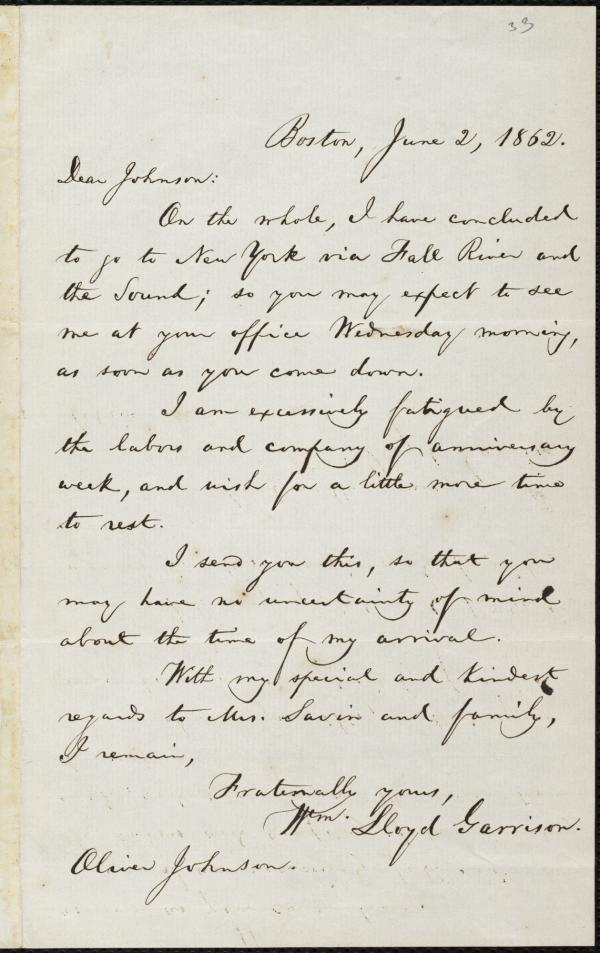 33
Boston, June 2, 1862.
Dear Johnson:
On the whole, I have concluded
to go to New York via Fall River and
the Sound; so you may expect to see
me at your office Wednesday morning,
as soon as you come down.
I am excessively fatigued by
the labors and company of anniversary
week, and wish for a little more time
to rest.
I send you this, so that you
may have no uncertainty of mind
about the time of my arrival.
With my special and kindest
regards to Mrs. Savin and family,
I remain,
Fraternally yours,
Wm. Lloyd Garrison.
Oliver Johnson.